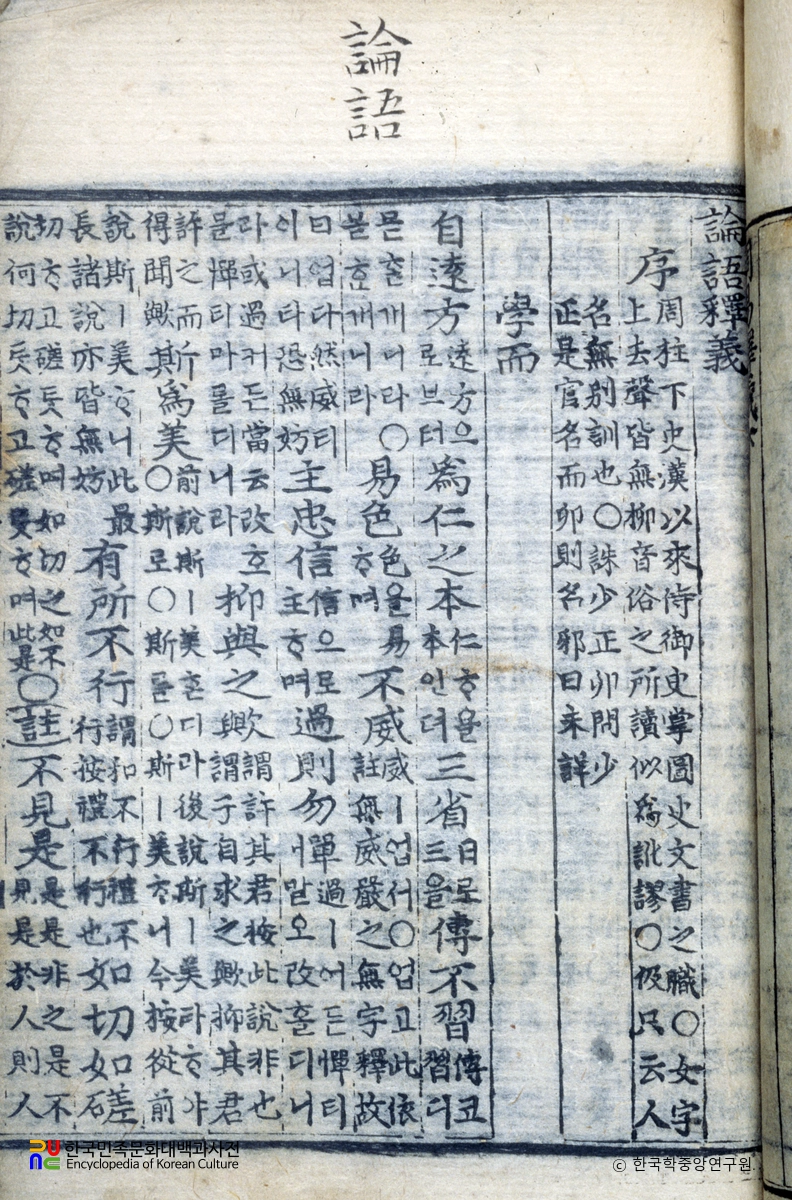 論語
論語釋義
序 周柱下史漢以來侍御史掌圖史文書之職〇女字
上去聲皆無柳音俗之所讀似爲訛謬〇伋只云人
名無別訓也〇誅少正卯問少
正是官名而卯則名邪曰未詳
學而
自遠方 遠方으로브터 爲仁之本 仁ᄒᆞ욜本인뎌 三省 日로三을 傳不習 傳코習디
몯ᄒᆞᆫ개니라〇ᄒᆞᆫ개니라 易色 色을易ᄒᆞ며 不威 威ㅣ업서〇업고此依註無威嚴之無字釋故
曰업다然威티이니타恐無妨 主忠信 信으로主ᄒᆞ며 過則勿憚 過ㅣ어든憚티말오改홀디니
라或過커든當云改호믈憚티마롤디니라 抑與之歟 謂許其君按此說非也謂于自求之歟抑其君
許之而得聞歟 斯爲美 〇前說斯ㅣ美ᄒᆞᆫ디라後說斯ㅣ美라ᄒᆞ야斯로〇斯ᄅᆞᆯ〇斯ㅣ美ᄒᆞ니今按從前
說斯ㅣ美ᄒᆞ니此最長諸說亦皆無妨 有所不行 謂和不行禮不行按禮不行也 如切如磋
切ᄒᆞ고磋ᄐᆞᆺᄒᆞ며如切之如不說何切ᄐᆞᆺᄒᆞ고磋ᄐᆞᆺᄒᆞ며此是〇註 不見是 是是非之是不見是於人則人
한국민족문화대백과사전
Encyclopedia of Korean Culture
© 한국학중앙연구원